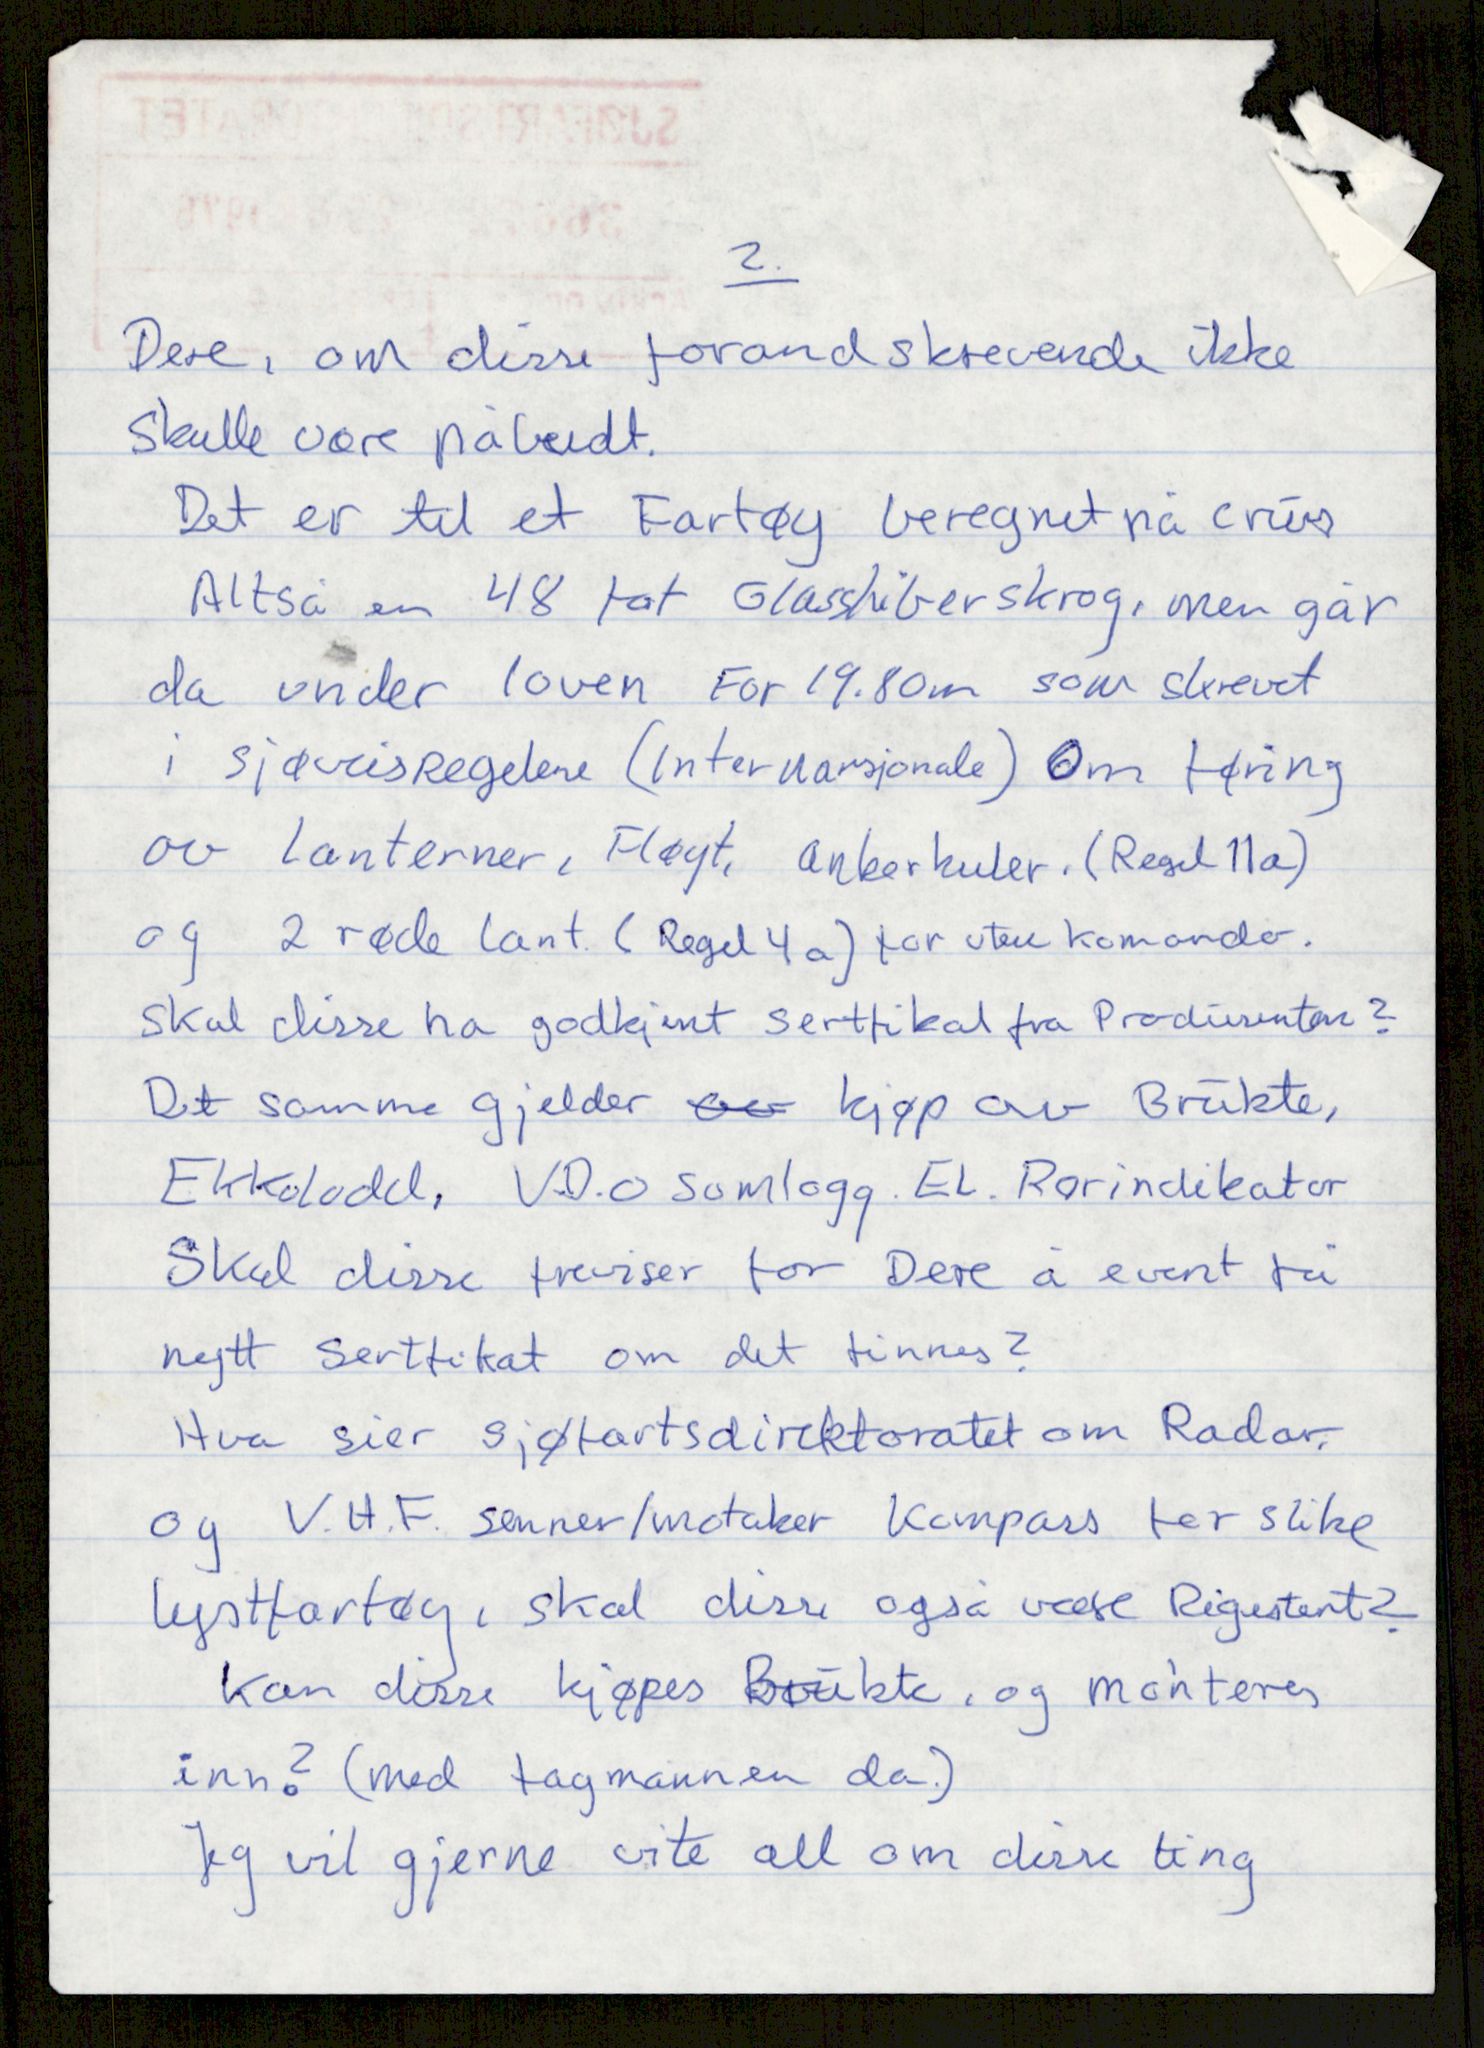 2.
Dere, om disse forandskrevende ikke
Skulle være påbudt.
Det er til et Fartøy beregnet på crüs
Altså en 48 fot Glassfiberskrog, men går
da under loven For 19.80m som skrevet
i sjøveisRegelene (Internasjonale) Om føring
av lanterner, Fløyt, ankerkuler. (Regel 11a)
og 2 røde lant. (Regel 4a) for uten komando.
Skal disse ha godkjent sertfikat fra Prodüsenten?
Det samme gjelder kjøp av Brükte,
Ekkolodd, V.D.O sumlogg. EL. Rorindikator
Skal disse freviser for Dere å event få
nytt Sertfikat om det finnes?
Hva sier sjøfartsdirektoratet om Radar,
og V.H.F. senner/motaker Kompass for slike
lystfartøy, skal disse også være Rigestert?
Kan disse kjøpes Brükte, og monteres
inn? (med fagmannen da.)
Jeg vil gjerne vite all om disse ting